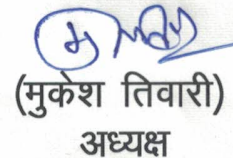 (मुकेश तिवारी)
अध्यक्ष